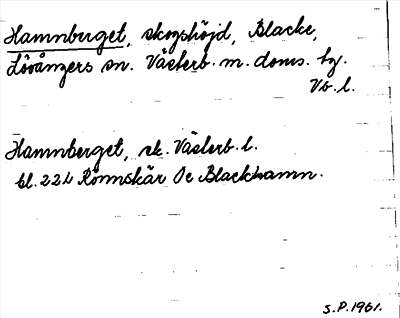 Hamnberget, skogshöjd, Blacke,
Lövångers sn. Västerb. m. doms. hg.
Vb. l.
Hamnberget, sk. Västerb. l.
bl. 22L Rönnskär Oc Blackhamn.
S.P. 1961.